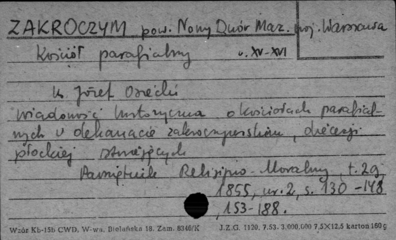 ZAKROCZYM pow. Nowy Dwór Maz. woj. Warszawa
Kościół parafialny w. XV-XVI
ks. Józef Osiecki
Wiadomość historyczna o kościołach parafial-
nych w dekanacie zakroczymskim, diecezji
płockiej istniejących
Pamiętnik Religijno-Moralny, t. 29
1855, nr. 2, s. 130-148
, 153-188.
Wzór Kb-15b CWD, W-wa, Bielańska 18. Zam. 8340/K J.Z.G. 1120. 7.53. 3.000.000 7,5×12,5 karton 160 g